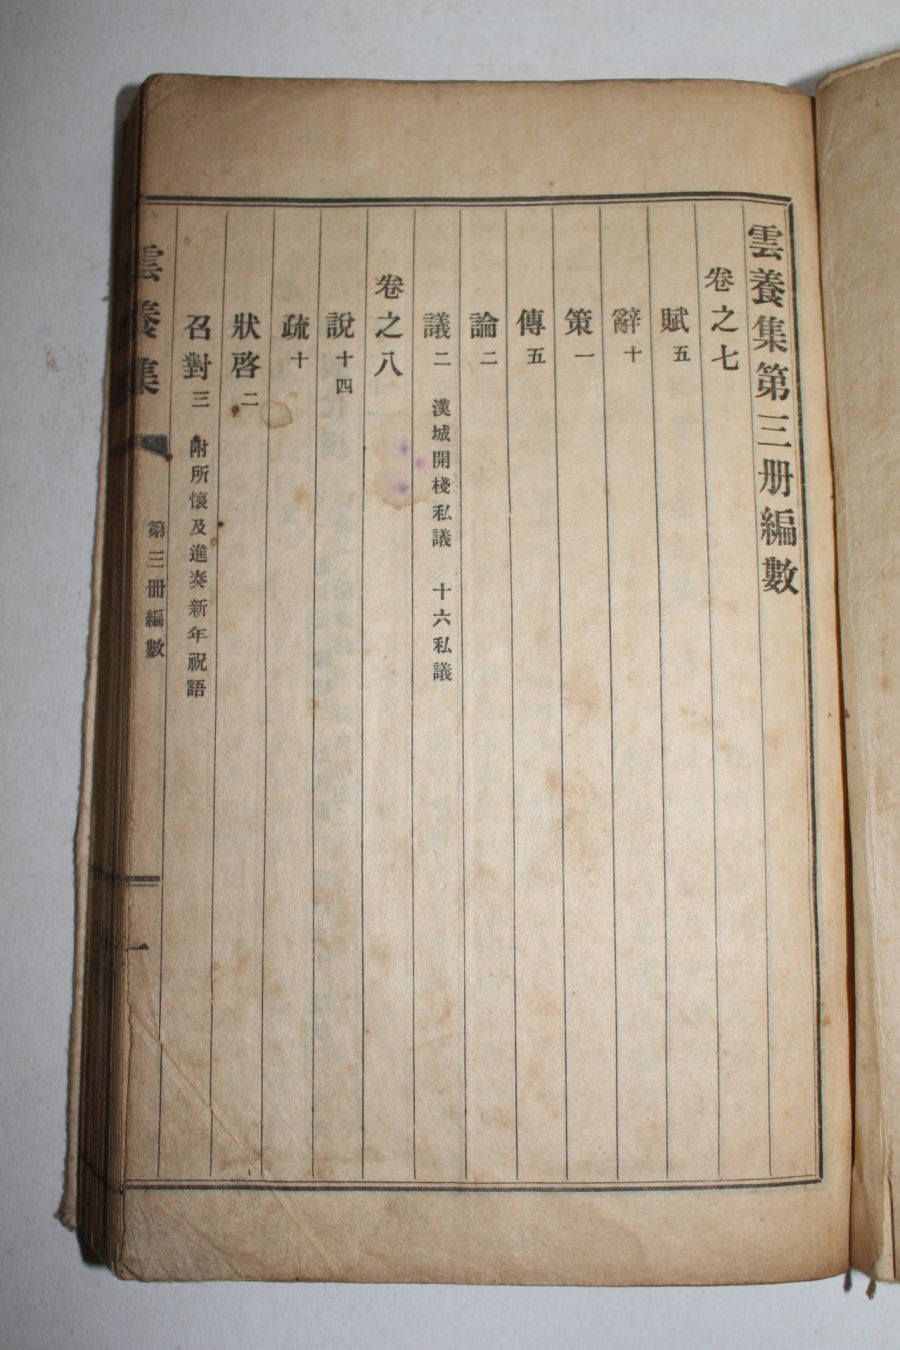 雲養集第三册編數
卷之七
賦五
辭十
策一
傳五
論二
議二 漢城開棧私議 十六私議
卷之八
說十四
疏十
狀啓二
召對三 附所懷及進奏新年祝語
雲養集 第三册編數 一